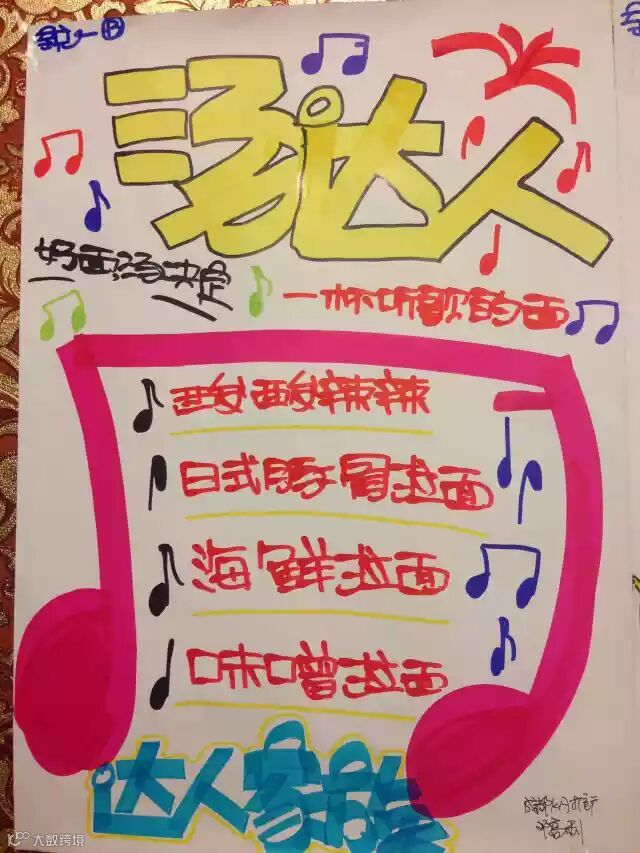 统一®
汤达人
好面汤决定
一杯听歌的面
酸酸辣辣
日式豚骨拉面
海鲜拉面
味噌拉面
达人家族
大数跨境